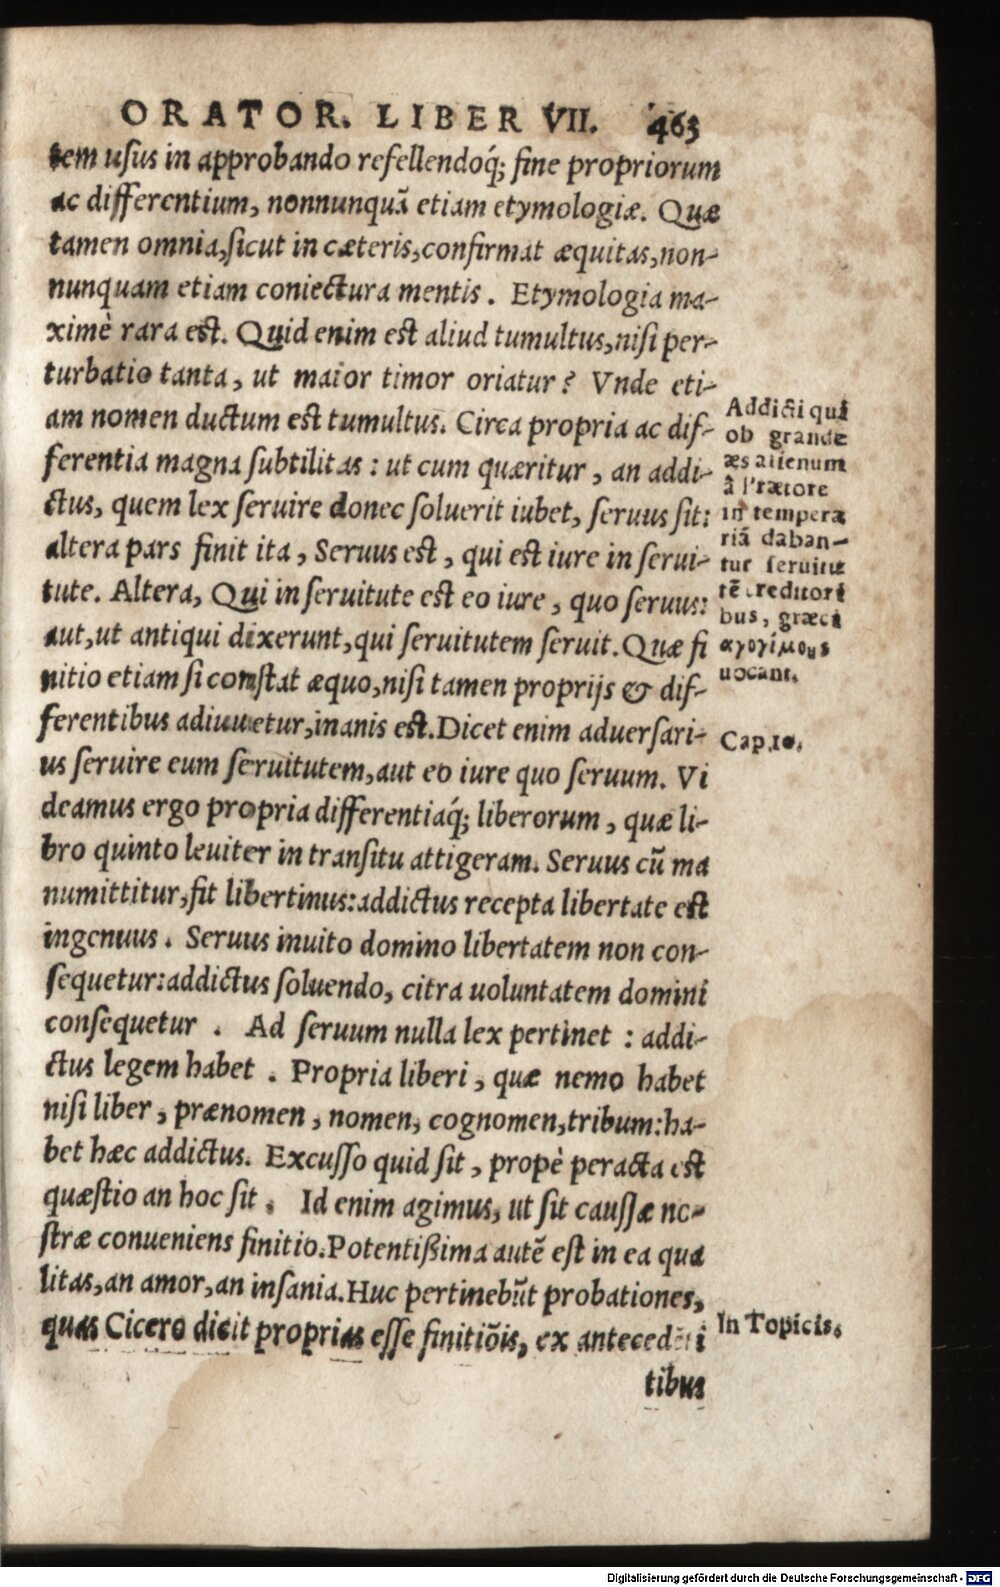 ORATOR. LIBER VII. 463
tem usus in approbando refellendoq́; fine propriorum
ac differentium, nonnunquā etiam etymologiæ. Quæ
tamen omnia,sicut in cæteris,confirmat æquitas,non-
nunquam etiam coniectura mentis. Etymologia ma-
ximè rara est. Quid enim est aliud tumultus,nisi per-
turbatio tanta, ut maior timor oriatur? Vnde eti-
am nomen ductum est tumultus. Circa propria ac dif-
ferentia magna subtilitas: ut cum quæritur, an addi-
ctus, quem lex seruire donec soluerit iubet, seruus sit:
altera pars finit ita, Seruus est, qui est iure in serui-
tute. Altera, Qui in seruitute est eo iure, quo seruus:
aut,ut antiqui dixerunt,qui seruitutem seruit. Quæ fi
nitio etiam si constat æquo,nisi tamen proprijs & dif-
ferentibus adiuuetur,inanis est.Dicet enim aduersari-
us seruire eum seruitutem,aut eo iure quo seruum. Vi
deamus ergo propria differentiaq́; liberorum, quæ li-
bro quinto leuiter in transitu attigeram. Seruus cū ma
numittitur,fit libertinus:addictus recepta libertate est
ingenuus. Seruus inuito domino libertatem non con-
sequetur:addictus soluendo, citra uoluntatem domini
consequetur. Ad seruum nulla lex pertinet: addi-
ctus legem habet. Propria liberi, quæ nemo habet
nisi liber, prænomen, nomen, cognomen,tribum:ha-
bet hæc addictus. Excusso quid sit, propè peracta est
quæstio an hoc sit. Id enim agimus, ut sit caussæ no-
stræ conueniens finitio.Potentißima autē est in ea qua
litas,an amor,an insania.Huc pertinebūt probationes,
quas Cicero dicit proprias esse finitiōis, ex antecedēti
tibus
Addicti qui
ob grande
æs alienum
à Prætore
in tempera
riā daban-
tur seruitu
tē creditori
bus, græci
αγογίμους
uocant.
Cap.10.
In Topicis.
Digitalisierung gefördert durch die Deutsche Forschungsgemeinschaft - DFG